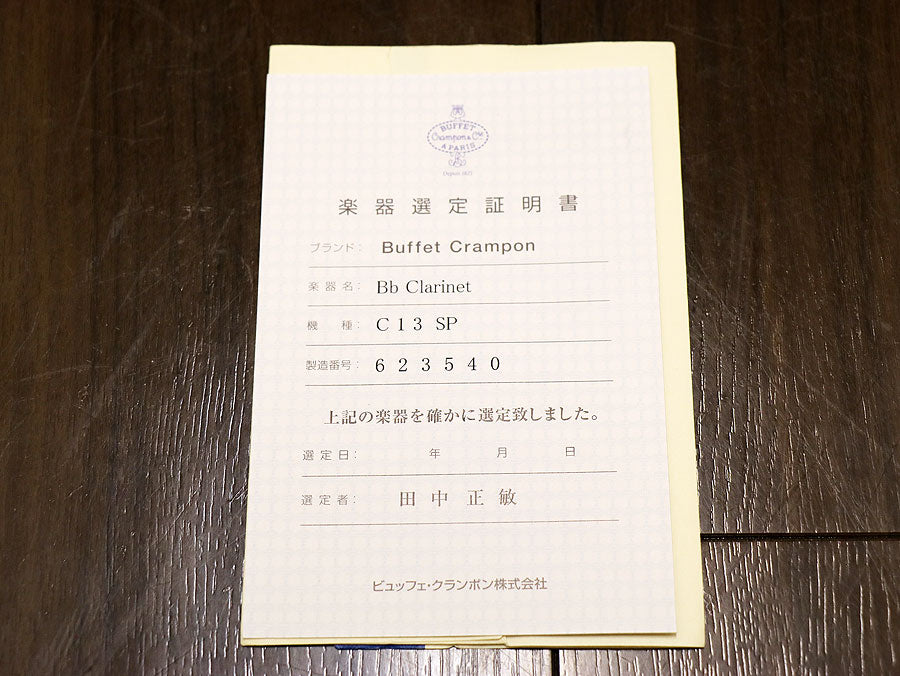 BUFFET
Crampon & Cie
A PARIS
Depuis 1825
楽器選定証明書
ブランド: Buffet Crampon
楽器名: Bb Clarinet
機種: C13 SP
製造番号: 623540
上記の楽器を確かに選定致しました。
選定日: 年 月 日
選定者: 田中正敏
ビュッフェ・クランポン株式会社